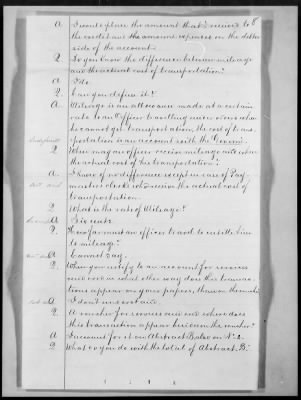 A. I would place the amount that I received to 8
the credit and the amount expended on the debtor
side of the account.
Q. Do you know the difference between mileage
and the actual cost of transportation?
A. I do.
Q. Can you define it?
A. Mileage is an allowance made at a certain
rate to an Officer travelling under orders when
he cannot get transportation, the cost of trans-
portation is an account with the Govern
Q. When may an officer receive mileage and when
the actual cost of his transportation?
A. I know of no difference except in case of Pay-
master's clerks who receive the actual cost of
transportation.
Q. What is the rate of Mileage?
A. Six cents.
Q. How far must an officer travel to entitle him
to mileage?
A. I cannot say.
Q. When you certify to an account for services
and when in what other way does this transac-
tions appear on your papers, than on the
A. I don't understand.
Q. A voucher for services and where does
this transaction appear besides on the voucher?
A. I account for it on Abstract No. 2.
Q. What do you do with the total of Abstract B?